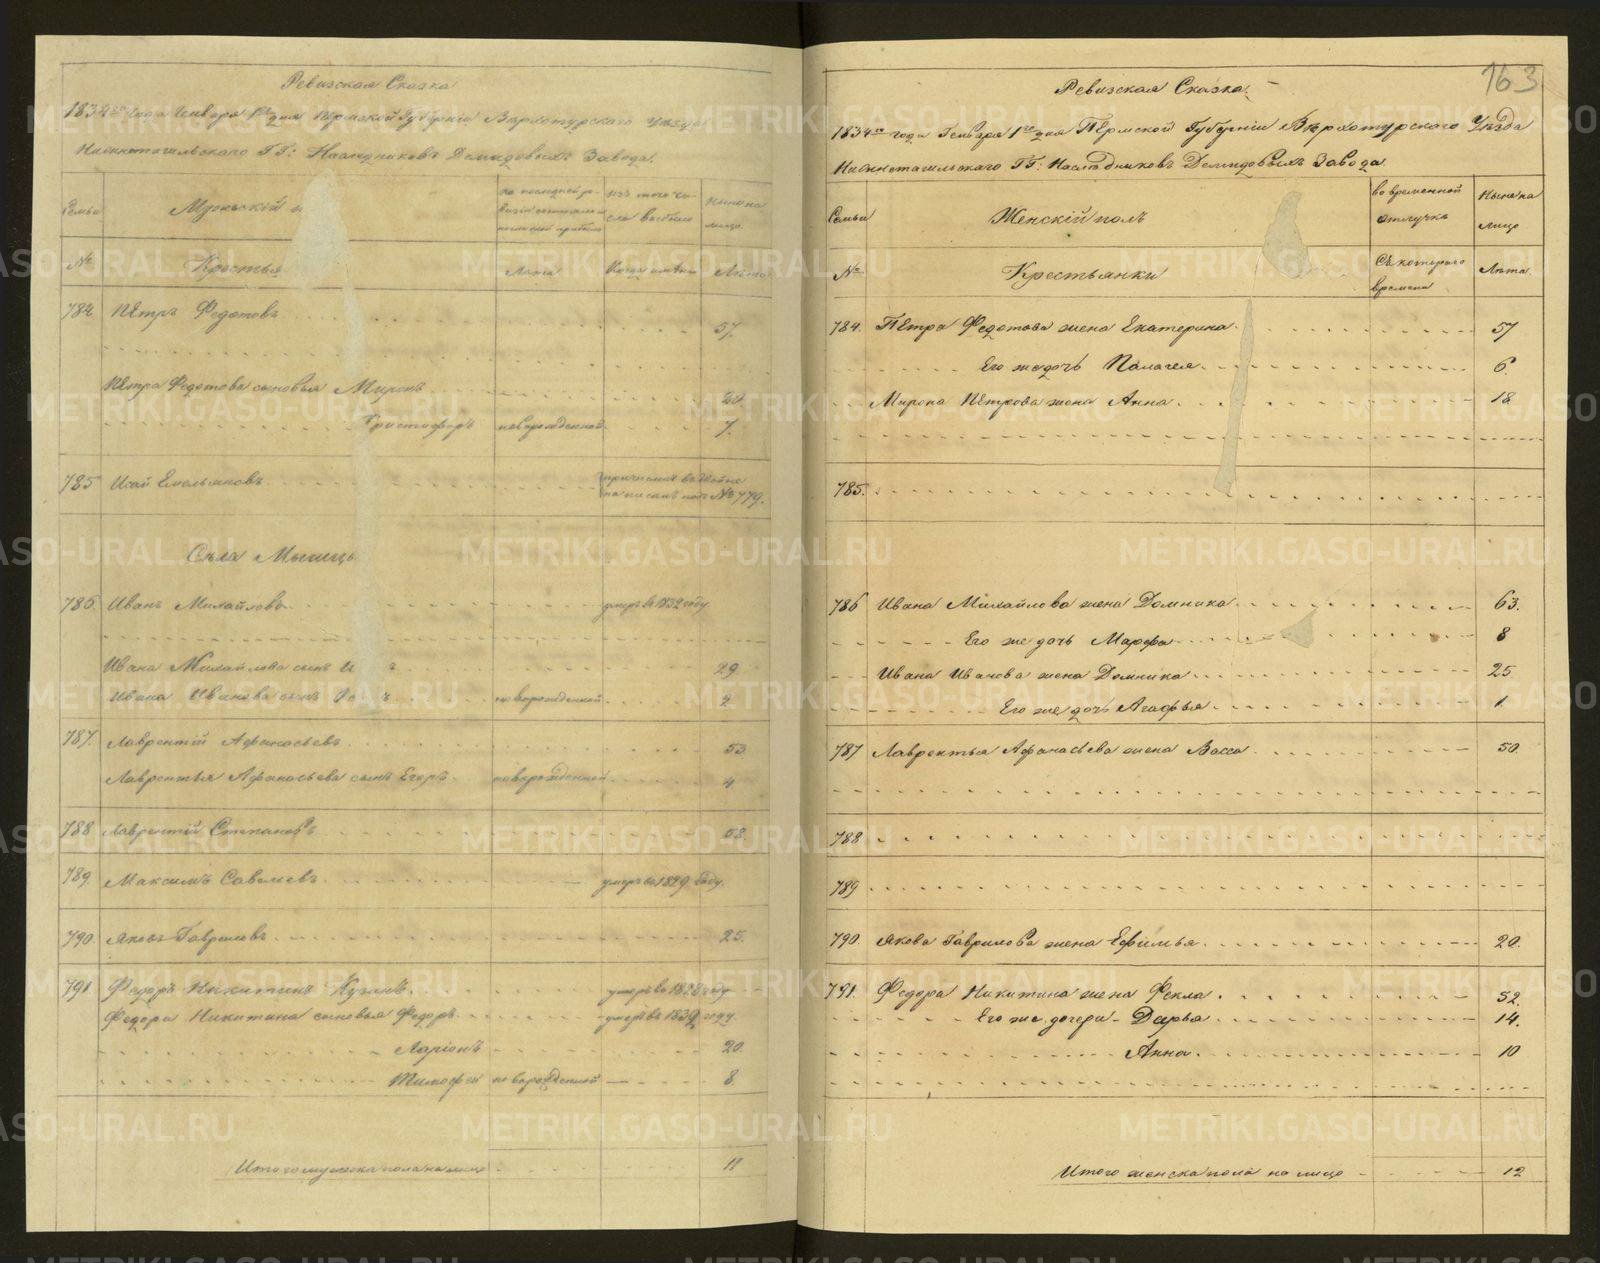 Ревизская Сказка
1834го года Генваря 1го дня Пермской Губерніи Верхотурского Уѣзда
Нижнетагильскаго ГГ: Наслѣдниковъ Демидовыхъ Завода.
Семьи
Мужескій
по последней ре-
визіи состояло и
изъ того чи-
сло выбыло
Ныне на
лицо
№
Крестья
Лѣта
Когда имѣнно
Лѣта
784 Петръ Федотовъ 57.
Петра Федотова сыновья Миронъ 20
Христофоръ новорожденной 7.
785 Исай Емельяновъ
написанъ подъ №779.
Села Мы
786 Иванъ Михайловъ умеръ в 1832 году
Ивана Михайлова сынъ И 29
Ивана Иванова сынъ новорожденной 2
787. Лаврентій Афанасьевъ 53
Лаврентья Афанасьева сынъ Егоръ новорожденной 4
788 Лаврентій Степановъ 58
789. Максимъ Савельевъ умеръ в 1829 году.
790. Яковъ Гавриловъ 25.
791 Федоръ Никитинъ умеръ в 1828 году
Федора Никитина сыновья Федоръ умеръ въ 1832 году.
Ларіонъ 20.
Тимофей новорожденной 8
Итого мужеска пола на лицо 11
163
Ревизская Сказка.
1834го года Генваря 1го дня Пермской Губерніи Верхотурского Уѣзда
Нижнетагильскаго ГГ: Наслѣдниковъ Демидовыхъ Завода
Семьи
Женскій полъ
во временной
отлучкѣ
Ныне на
лицо
№
Крестьянки
Съ которого
времени
Лѣта
784. Петра Федотова жена Екатерина 57
Его же дочь Палагея 6
Мирона Петрова жена Анна 18
785.
786 Ивана Михайлова жена Домника 63.
Его же дочь Марфа 8
Ивана Иванова жена Домника 25
Его же дочь Агафья 1
787 Лаврентья Афанасьева жена Васса 50.
788
789
790. Якова Гаврилова жена Ефимья 20.
791. Федора Никитина жена Фекла 52.
Его же дочери Дарья 14.
Анна 10
Итого женска пола на лицо 12
METRIKI.GASO-URAL.RU